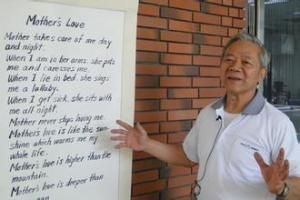 Mother's Love
Mother takes care of me day
and night.
When I am in her arms she pats
me and caresses me.
When I lie in bed she sings
me a lullaby.
When I get sick she sits with
me all night.
Mother never stops loving me.
Mother's love is like the sun-
shine which warms me my
whole life.
Mother's love is higher than the
mountain.
Mother's love is deeper than